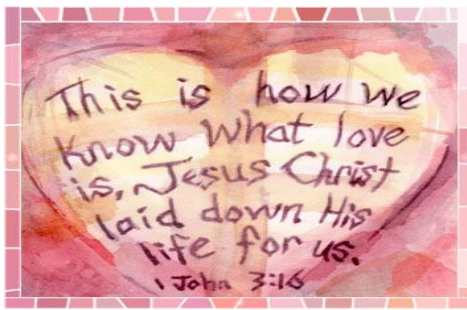 This is how we
know what love
is, Jesus Christ
laid down His
life for us.
1 John 3:16